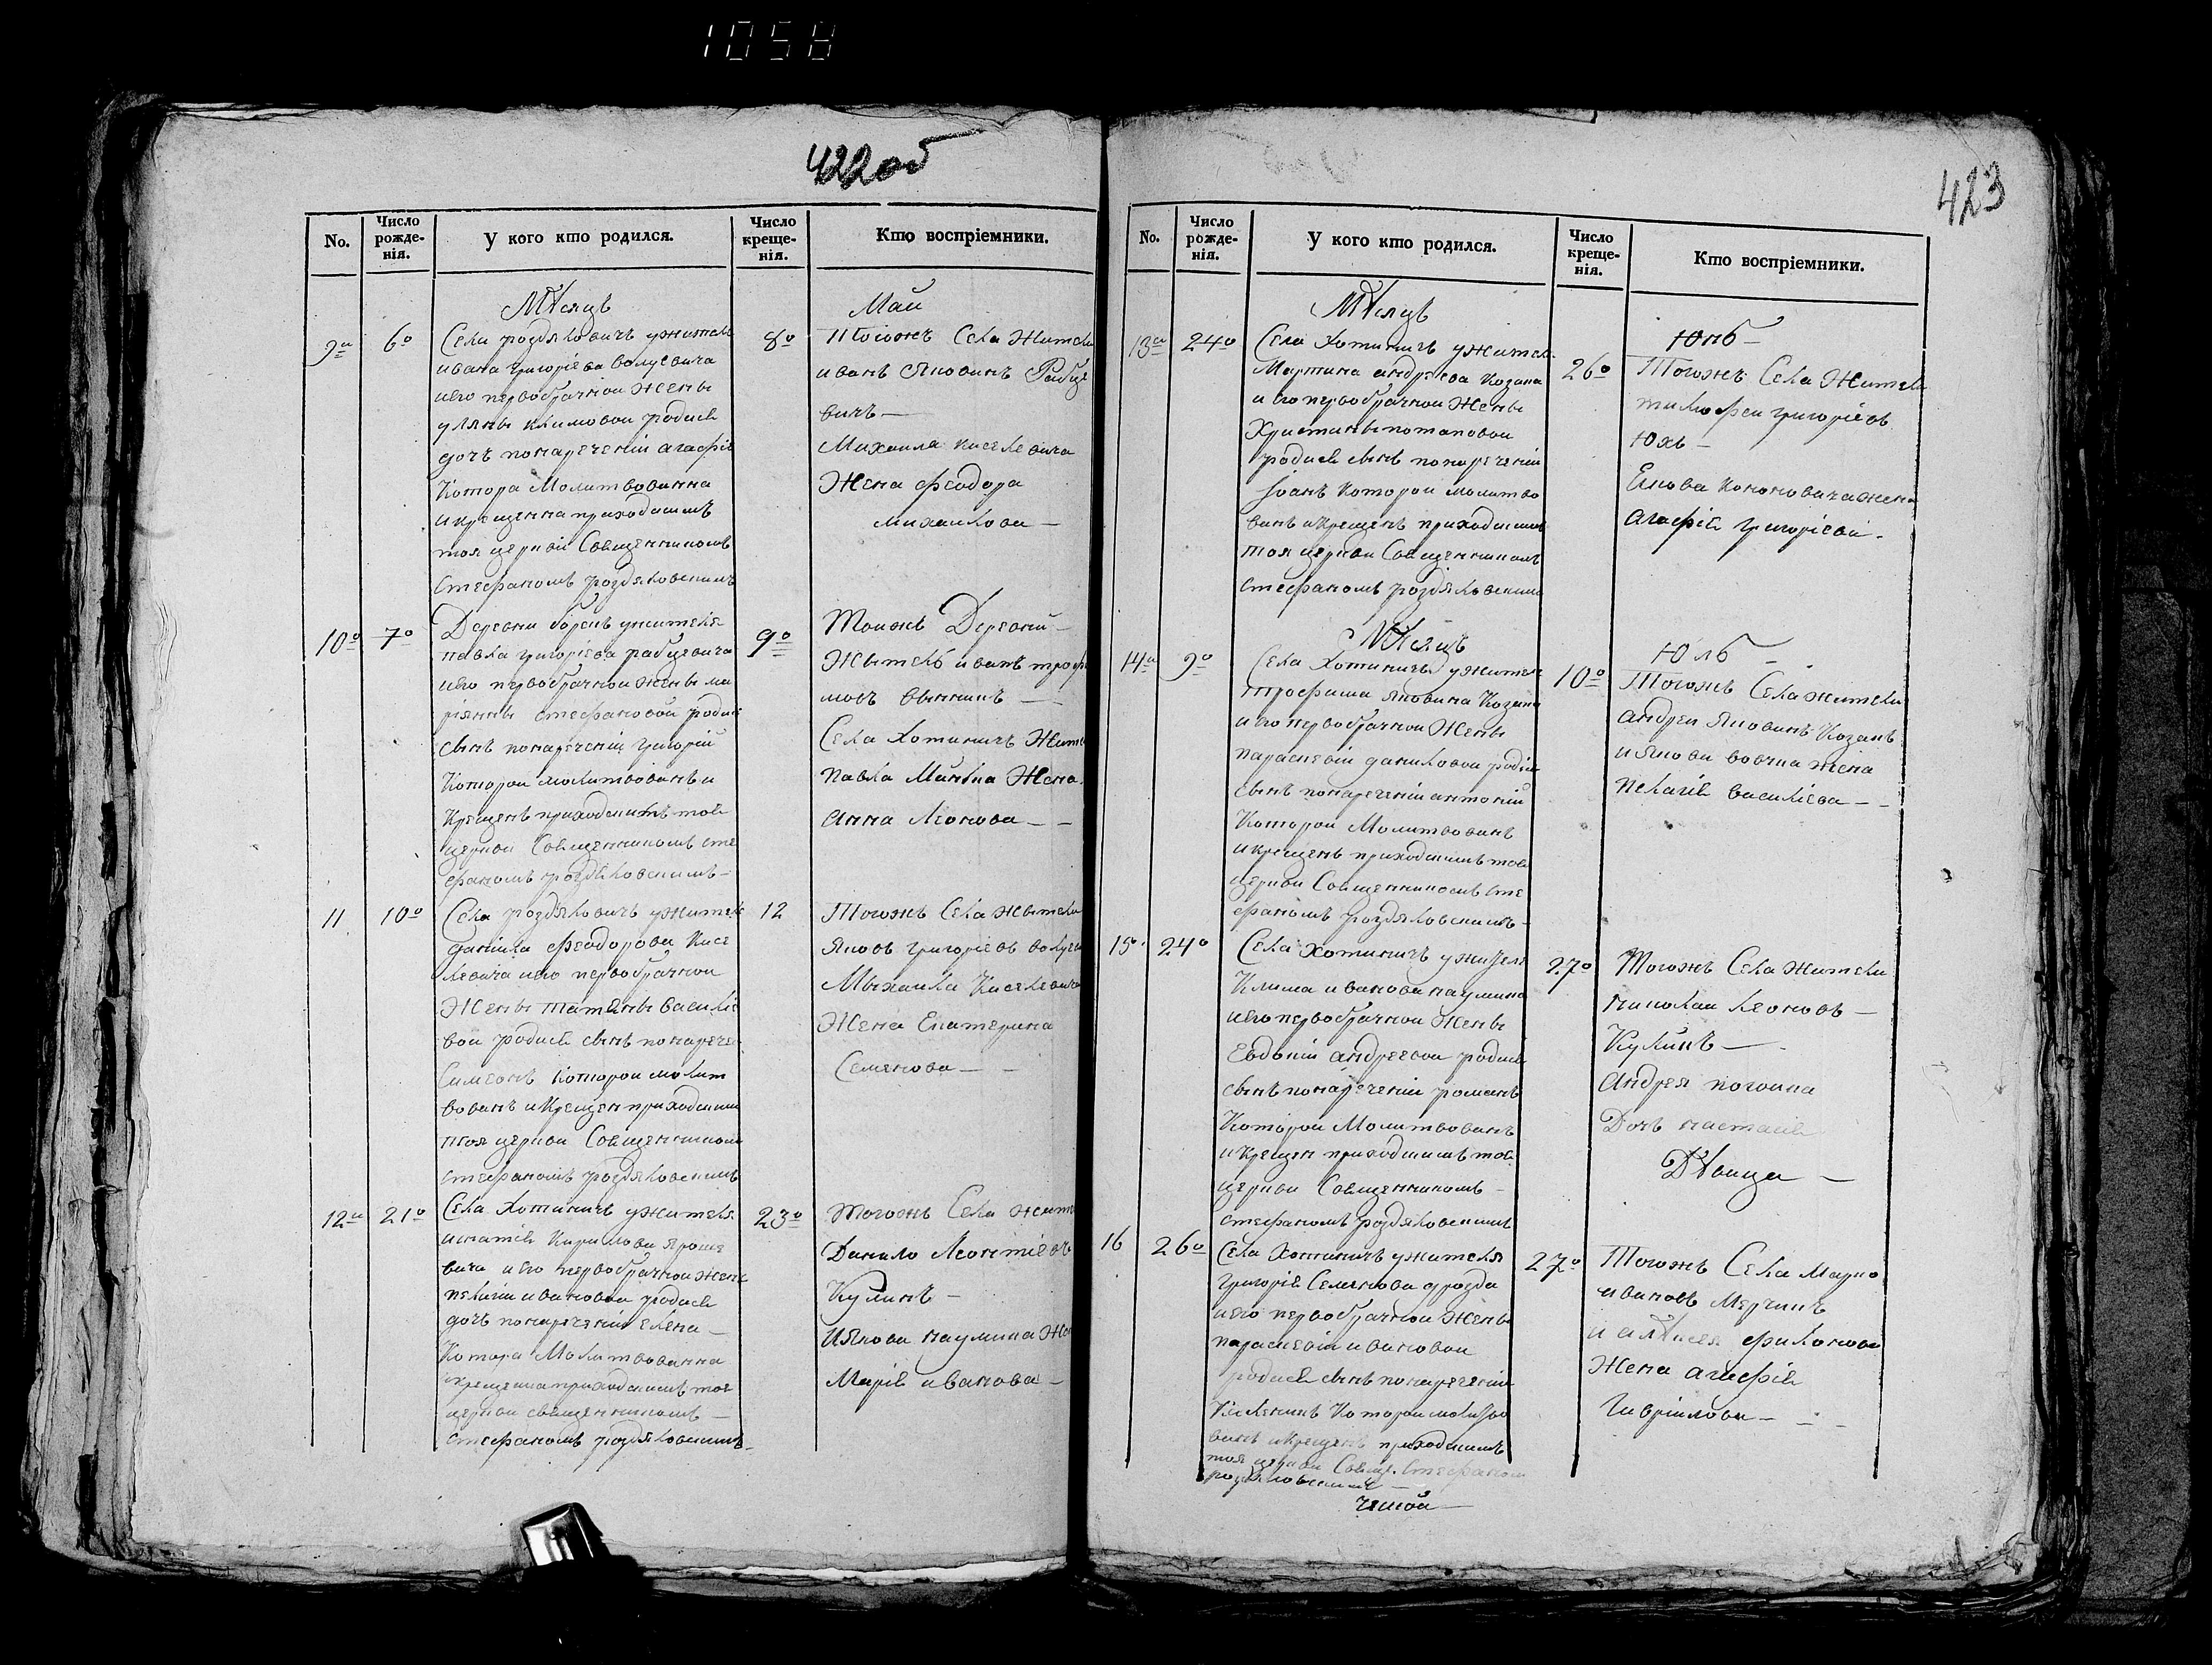 1058
422 об
No.
Число рожде-нія.
У кого кто родился.
Число креще-нія.
Кто воспріемники.
Мѣсяцъ
Май
9а
6о
Села роздяловичъ ужителя
ивана григорієва волусевича
иего первобрачной жены
уляны климовой родися
дочъ понареченій агафія
котора молитвованна
икрещенна приходскимъ
тоя церкви Священникомъ
стефаномъ роздяловскимъ
8о
Тогожъ Села Жители
иванъ Яковинъ Рабце
вичъ
Михаила киселевича
Жена феодора
михайлова
10о
7о
Деревни борецъ ужителя
павла григорієва рабцевича
иего первобрачной жены ма
ріянны стефановой родися
сынъ понареченій григорій
которой молитвованъ и
крещенъ приходскимъ тоя
церкви Священникомъ сте
фаномъ роздяловскимъ
9о
Тояжъ Деревній
Житель иванъ троф
мовъ
Села Хотиничъ Жит
павла Жена
анна Леонова
11
10о
Села роздяловичъ ужителя
даніила феодорова кисе
левича иего первобрачной
Жены татяны василіе
вой родися сынъ понарече
Симеонъ которой молит
вованъ и крещен приходскимъ
тоя церкви Священником
стефаномъ роздяловскимъ
12
Тогожъ Села жители
Яковъ григорієвъ волусев
Михаила Киселевича
Жена Екатерина
Семенова
12а
21о
Села Хотиничъ ужителя
игнатія Кирилова яроше
вича иего первобрачной жены
пелагіи ивановой родися
дочъ понареченій елена
Котора молитвованна
крещенна приходскимъ тоя
церкви священникомъ
стефаномъ роздяловскимъ
23о
Тогожъ Села жит
Данило Леонтіевъ
Кулинъ
Иякова наумика Же
Марія иванова
423
No.
Число рожде-нія.
У кого кто родился.
Число креще-нія.
Кто воспріемники.
Мѣсяцъ
Юнь
13а
24о
Села Хотиничъ ужителя
Мартина андреева козака
иего первобрачной Жены
Христины потаповой
родися сынъ понареченій
іоанъ которой молитво
ванъ икрещенъ приходскимъ
тоя церкви Священникомъ
стефаномъ роздяловскимъ
26о
Тогожъ Села Жители
тимофей григорієвъ
Юхъ
Якова кононовича жена
агафія григорієва
Мѣсяцъ
Юль
14а
9о
Села Хотиничъ ужителя
Трофима яковина козака
иего первобрачной жены
параскевіи даниловой родися
сынъ понареченій антоній
Которой Молитвованъ
икрещенъ приходскимъ тоя
церкви Священникомъ сте
фаномъ роздяловскимъ
10о
Тогожъ Села жители
андрей яковинъ козакъ
иякова вовчка жена
пелагія василієва
15о
24о
Села Хотиничъ ужителя
Клима иванова наумика
иего первобрачной Жены
Евдокіи андреевой родися
сынъ понареченій романъ
Которой Молитвованъ
икрещен приходскимъ тоя
церкви Священникомъ
стефаномъ роздяловскимъ
27о
Тогожъ Села Жители
николай леоновъ
Кулинъ
андрея
Дочъ настасія
Дѣвица
16
26о
Села Хотиничъ ужителя
григорія Семенова дрозда
иего первобрачной Жены
параскевіи ивановой
родися сынъ понареченій
Которой молитво
ванъ икрещенъ приходскимъ
тоя церкви Свяще. Стефаном
роздяловскимъ
27о
Тогожъ Села Марко
ивановъ
и алѣксея филонова
Жена агафія
Гавріилова